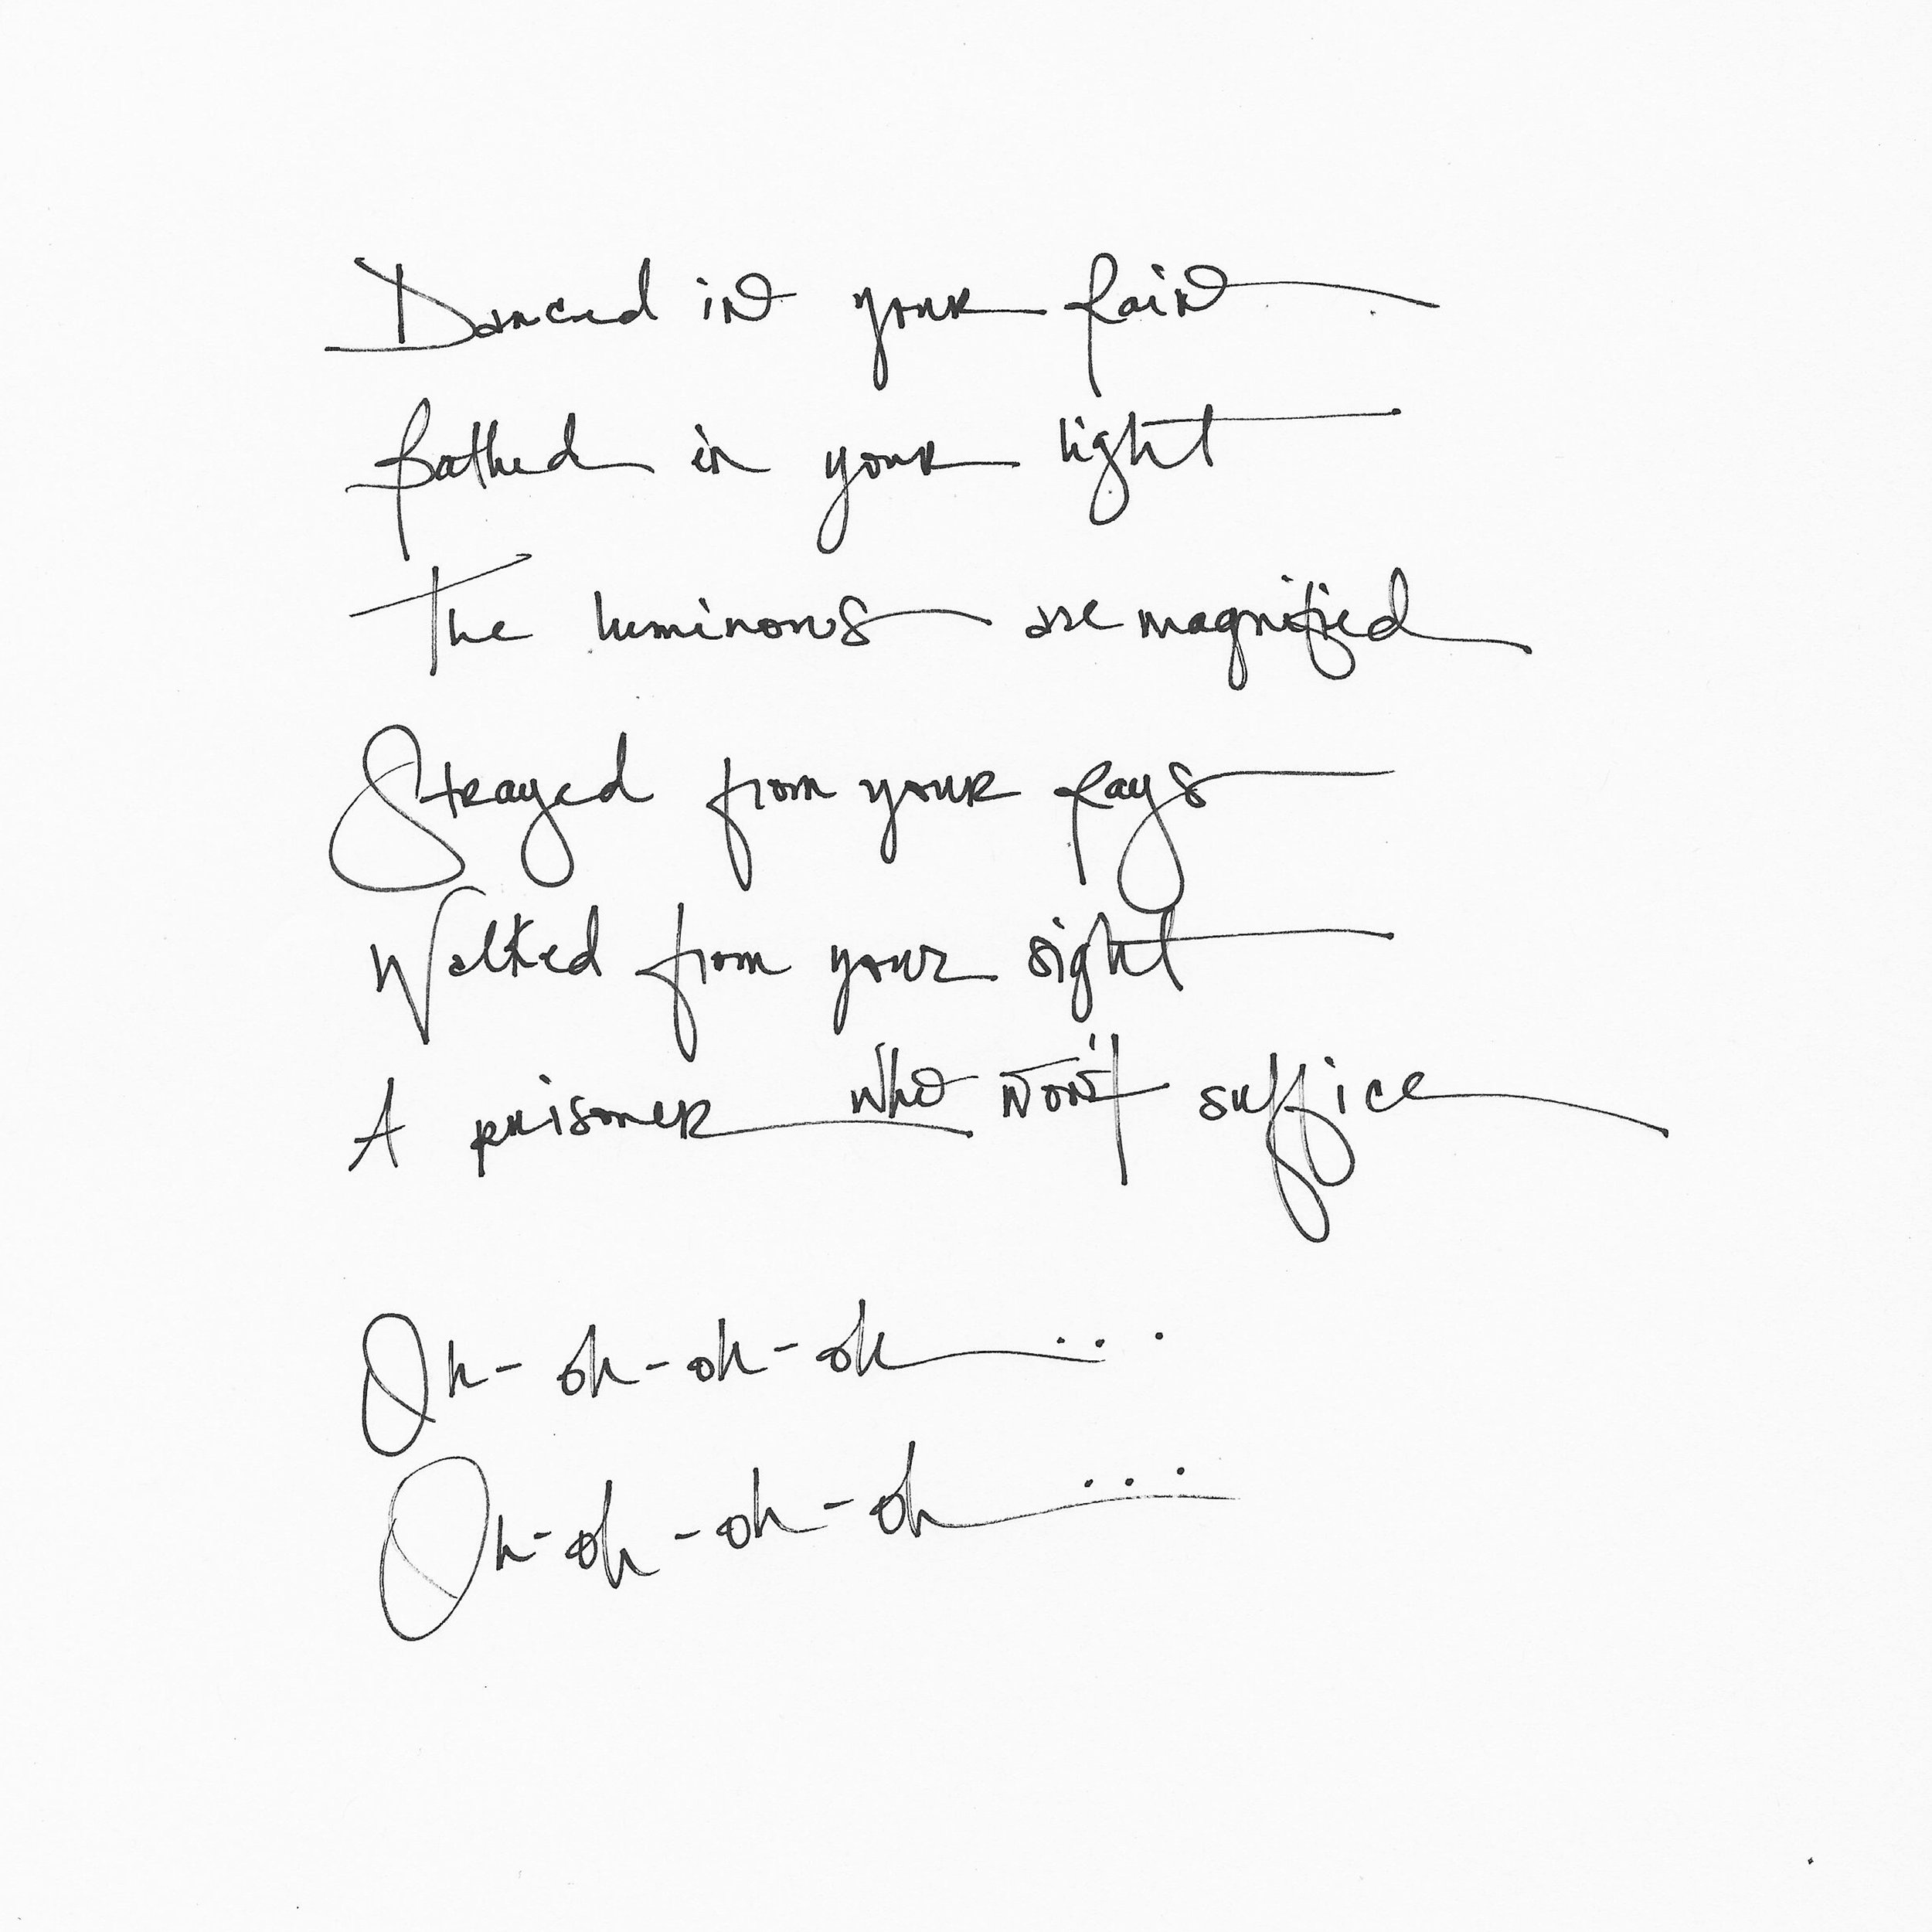 Danced in your rain
Bathed in your light
The luminous are magnified
Strayed from your rays
Walked from your sight
A prisoner who won't suffice
Oh-oh-oh-oh...
Oh-oh-oh-oh...